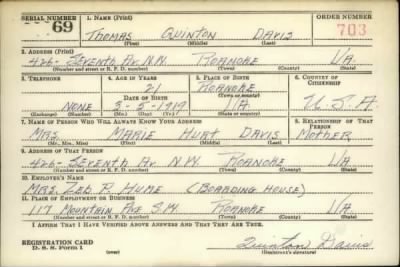 SERIAL NUMBER
1. NAME (Print)
ORDER NUMBER
69
THOMAS QUINTON DAVIS
703
(First) (Middle) (Last)
2. ADDRESS (Print)
426 - SEVENTH AV. N.W. ROANOKE VA
(Number and street or R. F. D. number) (Town) (County) (State)
3. TELEPHONE
4. AGE IN YEARS
5. PLACE OF BIRTH
6. COUNTRY OF CITIZENSHIP
21
ROANOKE
DATE OF BIRTH
(Town or county)
NONE
1919
VA
U. S. A.
(Exchange) (Number)
(Mo.) (Day) (Yr.)
(State or country)
7. NAME OF PERSON WHO WILL ALWAYS KNOW YOUR ADDRESS
8. RELATIONSHIP OF THAT PERSON
MRS. MARIE HURT DAVIS MOTHER
(Mr., Mrs., Miss) (First) (Middle) (Last)
9. ADDRESS OF THAT PERSON
426 - SEVENTH AV. N.W. ROANOKE VA
(Number and street or R. F. D. number) (Town) (County) (State)
10. EMPLOYER'S NAME
MRS. ZEB P. HUME (BOARDING HOUSE)
11. PLACE OF EMPLOYMENT OR BUSINESS
117 MOUNTAIN AVE S.W. ROANOKE VA
(Number and street or R. F. D. number) (Town) (County) (State)
I AFFIRM THAT I HAVE VERIFIED ABOVE ANSWERS AND THAT THEY ARE TRUE.
REGISTRATION CARD
D. S. S. Form 1
(over)
Quinton Davis
(Registrant's signature)